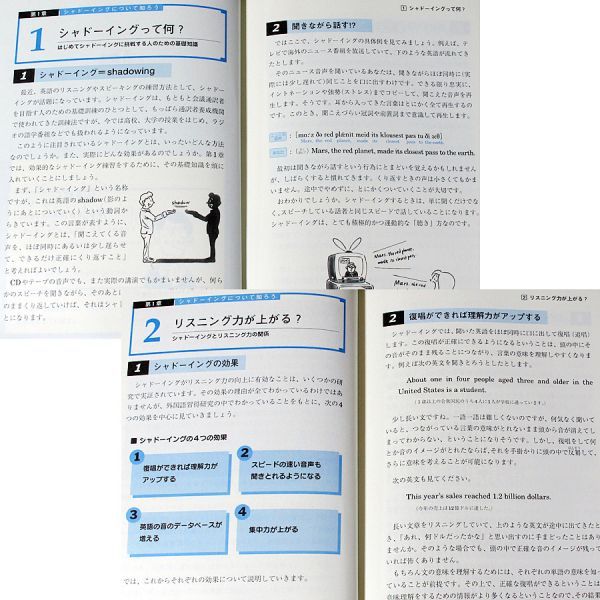 第1章 シャドーイングについて知ろう
1 シャドーイングって何？
はじめてシャドーイングに挑戦する人のための基礎知識
1 シャドーイング＝shadowing
最近、英語のリスニングやスピーキングの練習方法として、シャドー
イングが話題になっています。シャドーイングは、もともと会議通訳者
を目指す人のための基礎訓練のひとつとして、もっぱら通訳者養成機関
で使われてきた訓練法ですが、今では高校、大学の授業をはじめ、ラジ
オの語学番組などでも扱われるようになっています。
このように注目されているシャドーイングとは、いったいどんな方法
なのでしょうか。また、実際にどんな効果があるのでしょうか。第1章
では、効果的なシャドーイング練習をするために、その基礎知識を頭に
入れていくことにしましょう。
まず、「シャドーイング」という名称
ですが、これは英語のshadow（影のよ
うにあとについていく）という動詞か
らきています。この言葉が表すように、
シャドーイングとは、「聞こえてくる音
声を、ほぼ同時にあるいは少し遅らせ
て、できるだけ正確にくり返すこと」
と考えればよいでしょう。
shadow
CDやテープの音声でも、また実際の講演でもかまいませんが、何ら
かのスピーチを聞きながら、そのあと
のままくり返していけば、それはシャ
とになります。
1 シャドーイングって何？
2 聞きながら話す!?
ではここで、シャドーイングの具体例を見てみましょう。例えば、テ
レビで海外のニュース番組を放送していて、下のような英語が流れてき
たとします。
そのニュース音声を聞いているあなたは、聞きながらほぼ同時に（実
際には少し遅れて）同じことを口に出すわけです。できる限り忠実に、
イントネーションや強勢（ストレス）までコピーして、聞こえた音声を再
生します。そうです。耳から入ってきた言葉はとにかく全て再生するの
です。このとき、聞こえづらい冠詞や前置詞まで意識して再生します。
Mars, the red planet, made its closest pass to the earth.
Mars, the red planet, made its closest pass to the earth.
最初は聞きながら話すという行為にとまどいを覚えるかもしれませ
んが、しばらくすると慣れてきます。くり返すときの声は小さくてもかま
いません。途中でやめずに、とにかくついていくことが大切です。
おわかりでしょうか。シャドーイングするときは、単に聞くだけでな
く、スピーチしている話者と同じスピードで話していることになります。
シャドーイングは、とても積極的かつ運動的な「聴き」方なのです。
第1章 シャドーイングについて知ろう
2 リスニング力が上がる？
シャドーイングとリスニング力の関係
1 シャドーイングの効果
シャドーイングがリスニング力の向上に有効なことは、いくつかの研
究で実証されています。その効果の理由が全てわかっているわけではあ
りませんが、外国語習得研究の中でわかっていることをもとに、次の4
つの効果を中心に見ていきましょう。
■ シャドーイングの4つの効果
1 復唱ができれば理解力が
アップする
2 スピードの速い音声も
聞きとれるようになる
3 英語の音のデータベースが
増える
4 集中力が上がる
では、これからそれぞれの効果について説明していきます。
2 リスニング力が上がる？
2 復唱ができれば理解力がアップする
シャドーイングでは、聞いた英語をほぼ同時に口に出して復唱（追唱）
します。この復唱が正確にできるようになるということは、頭の中にそ
の音がそのまま残ることにつながり、言葉の意味を理解しやすくなりま
す。例えば次の英文を聞きとろうとしたとします。
About one in four people aged three and older in the
United States is a student.
少し長い文ですね。一語一語は難しくないのですが、何気なく聞いて
いると、つながっている言葉の意味がとれないまま頭から音が消えてし
まってわからない、ということになりそうです。しかし、復唱をして何
とか音のイメージがとれたならば、それを手掛かりに頭の中で反芻して、
さらに意味を考えることが可能になります。
次の英文も見てください。
This year's sales reached 1.2 billion dollars.
（今年の売上は12億ドルに達した。）
長い文章をリスニングしていて、上のような英文が途中に出てきたと
き、「あれ、何ドルだったかな」と思い出すのに手まどったことはあり
ませんか。そのような場合でも、頭の中で正確な音のイメージが残って
いれば怖くありません。
もちろん文の意味を理解するためには、それぞれの単語の意味を知っ
ていることが前提です。その上で、正確な復唱ができるということは
意味理解をするための情報がより多くなるということなので、その結